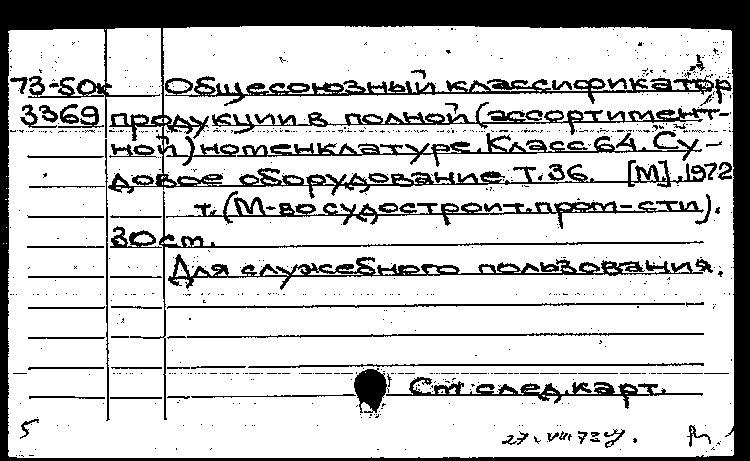 73-50к Общесоюзный классификатор
3369 продукции в полной (ассортимент-
ной) номенклатуре. Класс 64. Су-
довое оборудование. Т. 36. [М], 1972
т. (М-во судостроит. пром-сти).
30 ст.
Для служебного пользования.
Ст. след. карт.
5 27. VIII 73